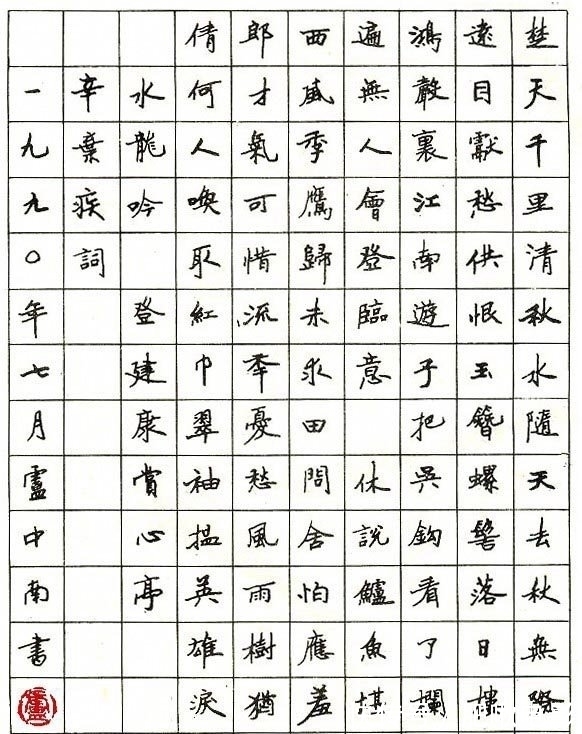 楚天千里清秋水隨天去秋無際
遠目獻愁供恨玉簪螺髻落日樓
鴻聲裏江南遊子把吳鈎看了欄
遍無人會登臨意 休說鱸魚堪
西風季鷹歸未求田問舍怕應羞
郎才氣可惜流秊憂愁風雨樹猶
倩何人喚取紅巾翠袖搵英雄淚
水龍吟 登建康賞心亭
辛棄疾詞
一九九〇年七月盧中南書